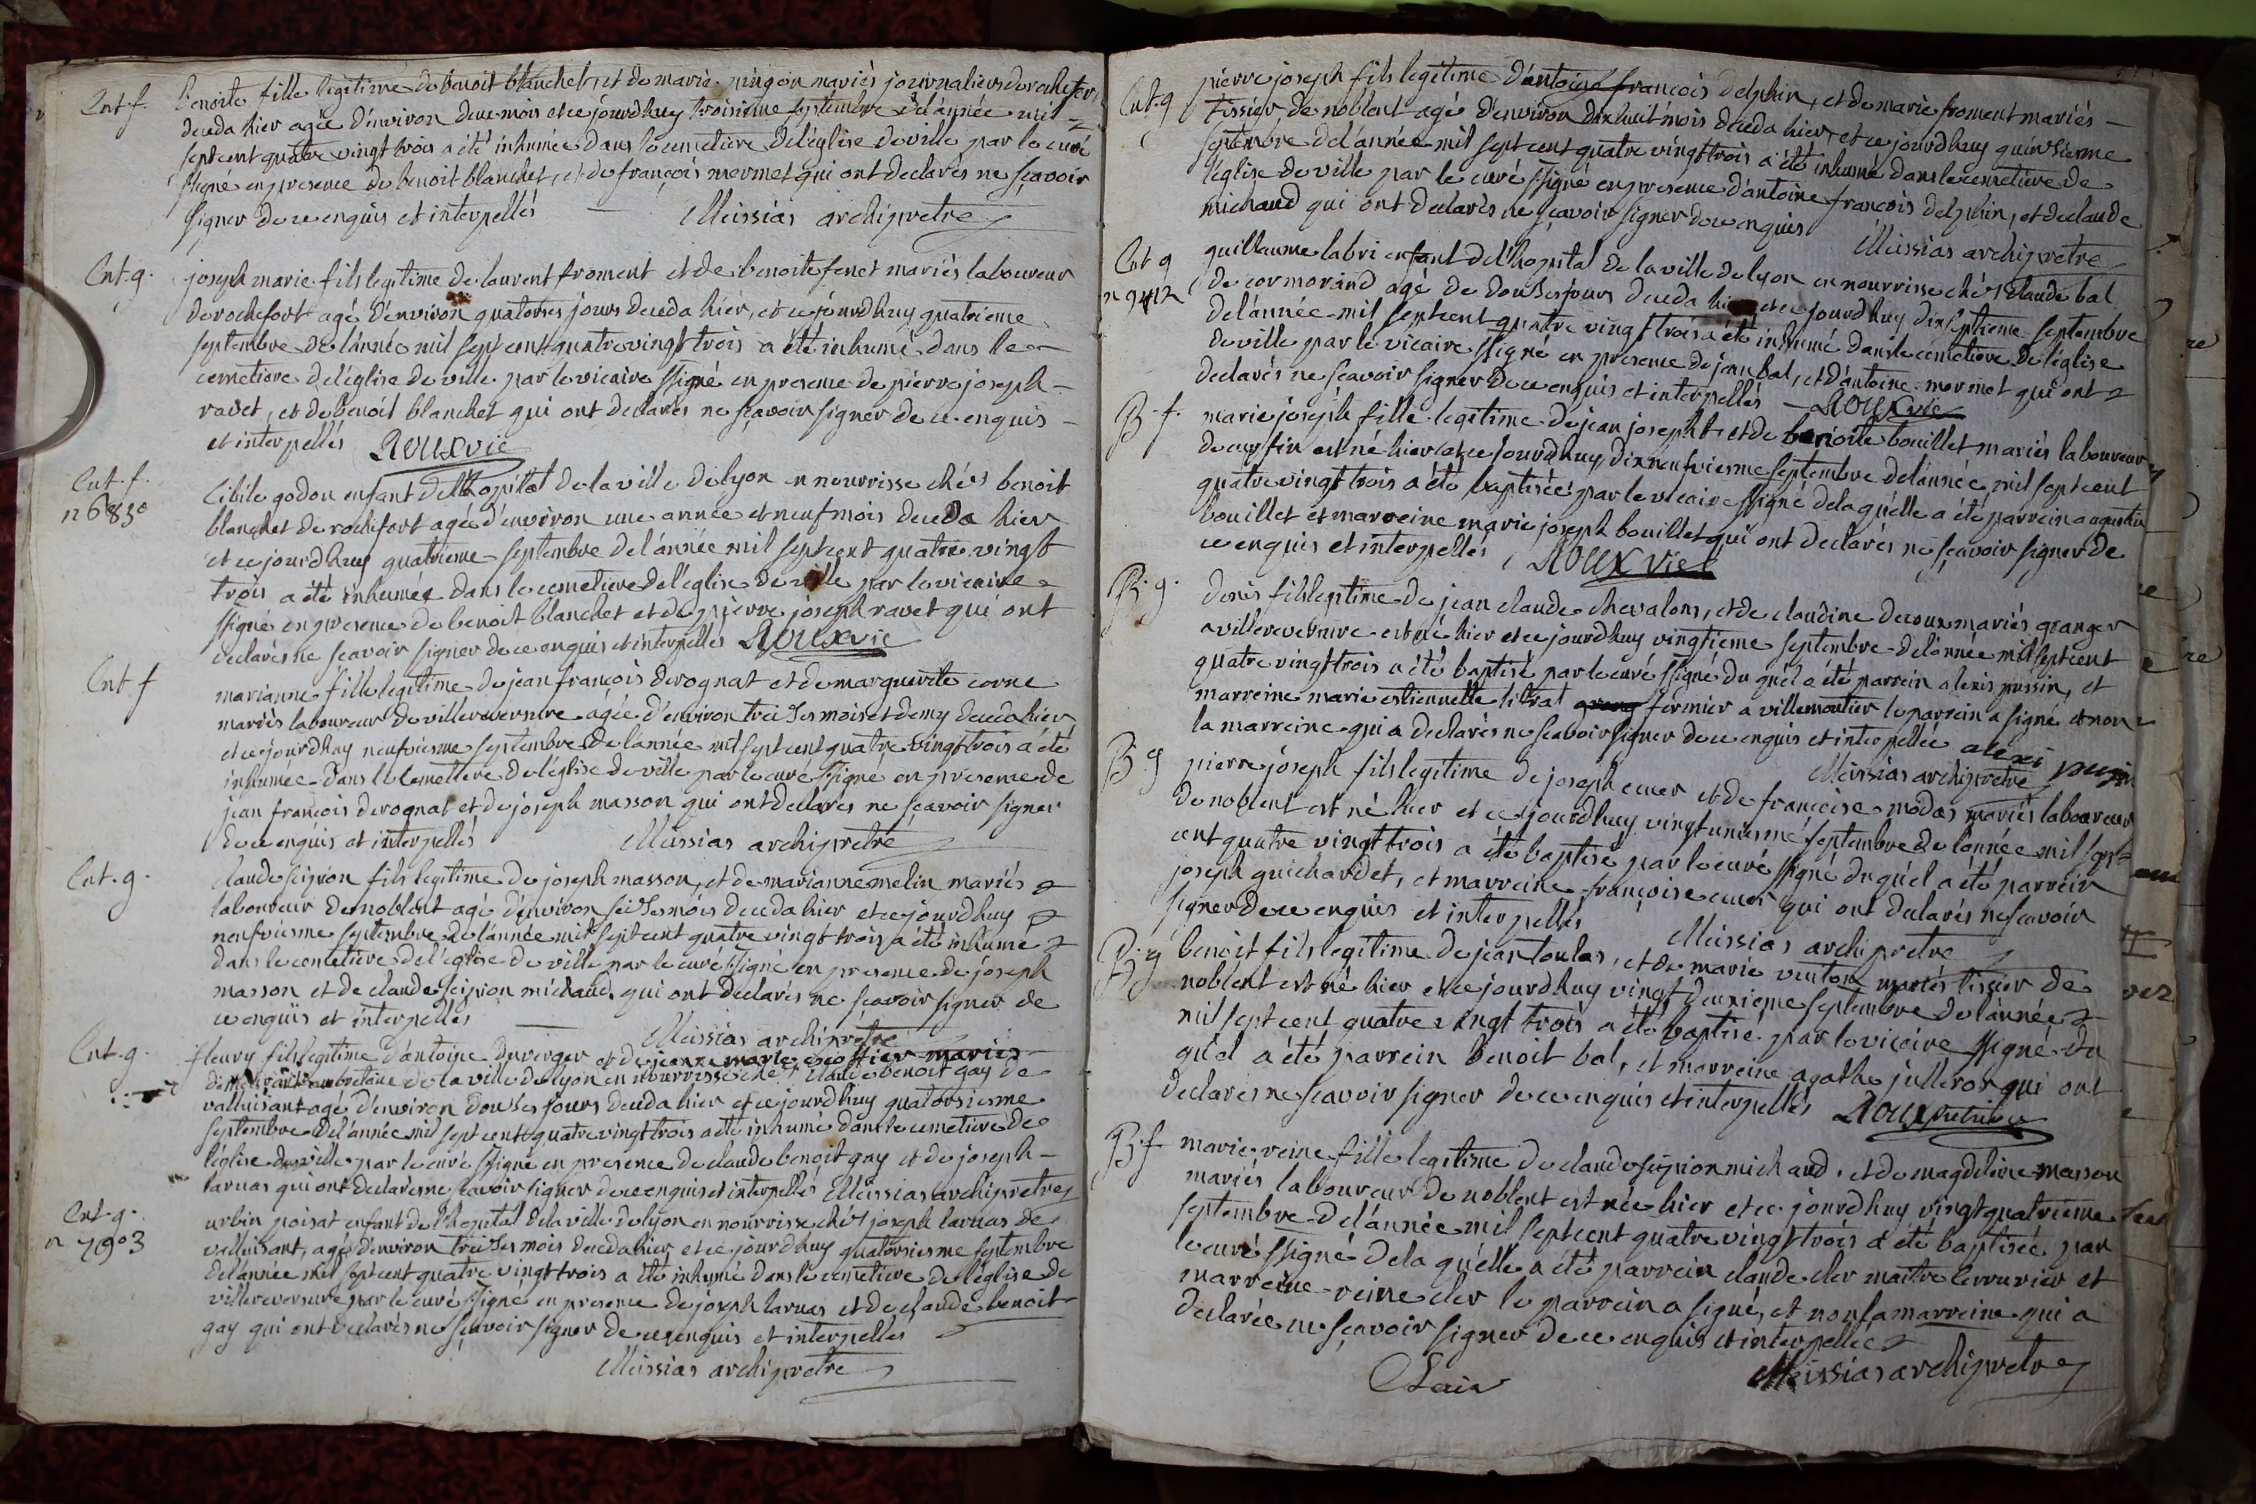 Ent. f. Benoite fille legitime de benoit blanchet, et de marie pingon mariés journaliers de rochefort,
deceda hier agée d'environ deux mois et ce jourdhuy troisieme septembre de l'année mil
sept cent quatre vingt trois a été inhumée dans le cemetiere de l'église de ville par le curé
ssigné en presence de benoit blanchet, et de françois mermet qui ont declarés ne sçavoir
signer de ce enquis et interpellés Meissias archipretre
Ent. g. joseph marie fils legitime de laurent froment et de benoite fenet mariés laboureur
de rochefort agé d'environ quatorses jours deceda hier, et ce jourdhuy quatrieme
septembre de l'année mil sept cent quatre vingt trois a été inhumé dans le
cemetiere de l'église de ville par le vicaire ssigné en presence de pierre joseph
ravet, et de benoit blanchet qui ont declarés ne sçavoir signer de ce enquis
et interpellés Roux vic
Ent. f.
n 6830
Cibile godon enfant de l'hopital de la ville de lyon en nourrisse chés benoit
blanchet de rochefort agée d'environ une année et neuf mois deceda hier
et ce jourdhuy quatrieme septembre de l'année mil sept cent quatre vingt
trois a été inhumée dans le cemetiere de l'église de ville par le vicaire
ssigné en presence de benoit blanchet et de pierre joseph ravet qui ont
declarés ne sçavoir signer de ce enquis et interpellés Roux vic
Ent. f marianne fille legitime de jean françois derognat et de marguerite corne
mariés laboureur de villereversure agée d'environ treises mois et demy deceda hier
et ce jourdhuy neufviesme septembre de l'année mil sept cent quatre vingt trois a été
inhumée dans le cemetiere de l'église de ville par le curé ssigné en presence de
jean françois derognat et de joseph masson qui ont declarés ne sçavoir signer
de ce enquis et interpellés Meissias archipretre
Ent. g. claude scipion fils legitime de joseph masson, et de marianne melin mariés
laboureur de noblent agé d'environ seises mois deceda hier et ce jourdhuy
neufviesme septembre de l'année mil sept cent quatre vingt trois a été inhumé
dans le cemetiere de l'église de ville par le curé ssigné en presence de joseph
masson et de claude scipion michaud qui ont declarés ne sçavoir signer de
ce enquis et interpellés Meissias archiprêtre
Ent. g. fleury fils legitime d'antoine duverger et de jeanne marie escoffier mariés
de la ville de lyon en nourrisse chés claude benoit gay de
valluisant agé d'environ douses jours deceda hier et ce jourdhuy quatorsiesme
septembre de l'année mil sept cent quatre vingt trois a été inhumé dans le cemetiere de
l'église de ville par le curé ssigné en presence de claude benoit gay et de joseph
laruas qui ont declarés ne sçavoir signer de ce enquis et interpellés Meissias archipretre
Ent. g.
n 7903
urbin poisat enfant de l'hopital de la ville de lyon en nourrisse chés joseph laruas de
valluisant, agé d'environ treises mois deceda hier et ce jourdhuy quatorsiesme septembre
de l'année mil sept cent quatre vingt trois a été inhumé dans le cemetiere de l'église de
villereversure par le curé ssigné en presence de joseph laruas et de claude benoit
gay qui ont declarés ne sçavoir signer de ce enquis et interpellés
Meissias archipretre
Ent. g pierre joseph fils legitime d'antoine françois delphin, et de marie froment mariés
tissier de noblent agé d'environ dix huit mois deceda hier, et ce jourdhuy quinsieme
septembre de l'année mil sept cent quatre vingt trois a été inhumé dans le cemetiere de
l'église de ville par le curé ssigné en presence d'antoine françois delphin, et de claude
michaud qui ont declarés ne sçavoir signer de ce enquis Meissias archipretre
Ent g
n 9412
guillaume labri enfant de l'hopital de la ville de lyon en nourrisse chés claude bal
de cormorand agé de douses jours deceda hier et ce jourdhuy dix septieme septembre
de l'année mil sept cent quatre vingt trois a été inhumé dans le cemetiere de l'église
de ville par le vicaire ssigné en presence de jean bal, et d'antoine mermet qui ont
declarés ne sçavoir signer de ce enquis et interpellés Roux vic
B. f. marie joseph fille legitime de jean joseph et de benoite bouillet mariés laboureur
de est né hier et ce jourdhuy dixneufviesme septembre de l'année mil sept cent
quatre vingt trois a été baptisée par le vicaire ssigné de la quélle a été parrein augustin
bouillet et marreine marie joseph bouillet qui ont declarés ne sçavoir signer de
ce enquis et interpellés Roux vic
B. g. denis fils legitime de jean claude chevalons, et de claudine decoux mariés granger
a villereversure est né hier et ce jourdhuy vingtieme septembre de l'année mil sept cent
quatre vingt trois a été baptisé par le curé ssigné du quél a été parrein alexis pussin, et
marreine marie estiennette litrat fermier a villemoutier le parrein a signé et non
la marreine qui a declarés ne sçavoir signer de ce enquis et interpellée alexi
Meissias archipretre
B. g pierre joseph fils legitime de joseph cuer et de françoise modas mariés laboureur
de noblent est né hier et ce jourdhuy vingt uniesme septembre de l'année mil sept
cent quatre vingt trois a été baptisé par le curé ssigné du quél a été parrein
joseph guichardet, et marreine françoise cuer qui ont declarés ne sçavoir
signer de ce enquis et interpellés Meissias archipretre
B. g benoit fils legitime de jean toulas, et de marie venton mariés tissier de
noblent est né hier et ce jourdhuy vingt deuxieme septembre de l'année
mil sept cent quatre vingt trois a été baptisé par le vicaire ssigné du
quél a été parrein benoit bal, et marreine agathe julleron qui ont
declarés ne sçavoir signer de ce enquis et interpellés Roux
B. f marie reine fille legitime de claude scipion michaud, et de magdeleine masson
mariés laboureur de noblent est née hier et ce jourdhuy vingt quatrieme
septembre de l'année mil sept cent quatre vingt trois a été baptisée par
le curé ssigné de la quélle a été parrein claude cler maitre serrurier et
marreine reine cler le parrein a signé, et non la marreine qui a
declarée ne sçavoir signer de ce enquis et interpellée
Clair Meissias archipretre